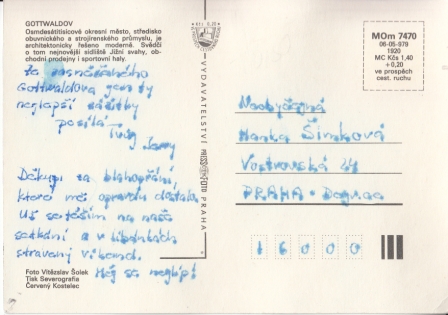 GOTTWALDOV
Osmdesátitisícové okresní město, středisko
obuvnického a strojírenského průmyslu, je
architektonicky řešeno moderně. Svědčí
o tom nejnovější sídliště Jižní svahy, ob-
chodní prodejny i sportovní haly.
Ze zasněženého
Gottwaldova
nejlepší zážitky
posílá
Tvůj
Děkuji za blahopřání,
které mě opravdu
Už se těším na naše
setkání a v
strávený víkend.
Měj se nejlíp!
Foto Vítězslav Šolek
Tisk Severografia
Červený Kostelec
VYDAVATELSTVÍ PRESSFOTO PRAHA
K51 0,20
MOm 7470
06-05-979
1920
MC Kčs 1,40
+0,20
ve prospěch
cest. ruchu
Hanka Šimková
Vostrovská
PRAHA - Dejvice
16000